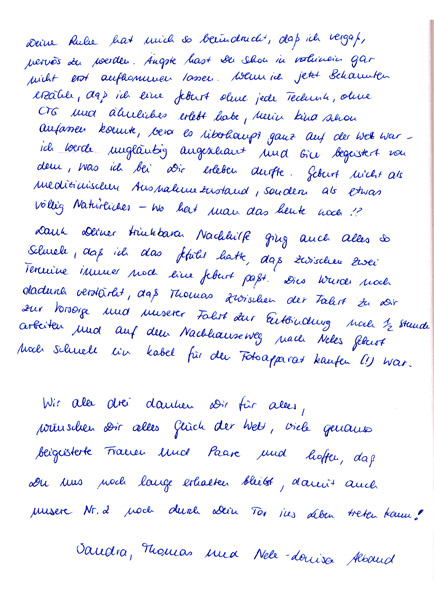 Deine Ruhe hat mich so beeindruckt, daß ich vergaß,
nervös zu werden. Ängste hast Du schon in vorhinein gar
nicht erst aufkommen lassen. Wenn ich jetzt Bekannten
erzähle, daß ich eine Geburt ohne jede Technik, ohne
CTG und ähnliches erlebt habe, mein Kind schon
anfassen konnte, bevor es überhaupt ganz auf der Welt war -
ich werde ungläubig angeschaut und bin begeistert von
dem, was ich bei Dir erleben durfte. Geburt nicht als
medizinischen Ausnahmezustand, sondern als etwas
völlig Natürliches - wo hat man das heute noch!?
Dank Deiner trinkbaren Nachhilfe ging auch alles so
schnell, daß ich das Gefühl hatte, daß zwischen zwei
Termine immer noch eine Geburt paßt. Dies wurde noch
dadurch verstärkt, daß Thomas zwischen der Fahrt zu Dir
zur Vorsorge und unserer Fahrt zur Entbindung noch 1/2 Stunde
arbeiten und auf dem Nachhauseweg nach Neles Geburt
noch schnell ein Kabel für den Fotoapparat kaufen (!) war.
Wir alle drei danken Dir für alles,
wünschen Dir alles Glück der Welt, viele genauso
begeisterte Frauen und Paare und hoffen, daß
Du uns noch lange erhalten bleibst, damit auch
unsere Nr. 2 noch durch Dein Tor ins Leben treten kann!
Sandra, Thomas und Nele-Louisa